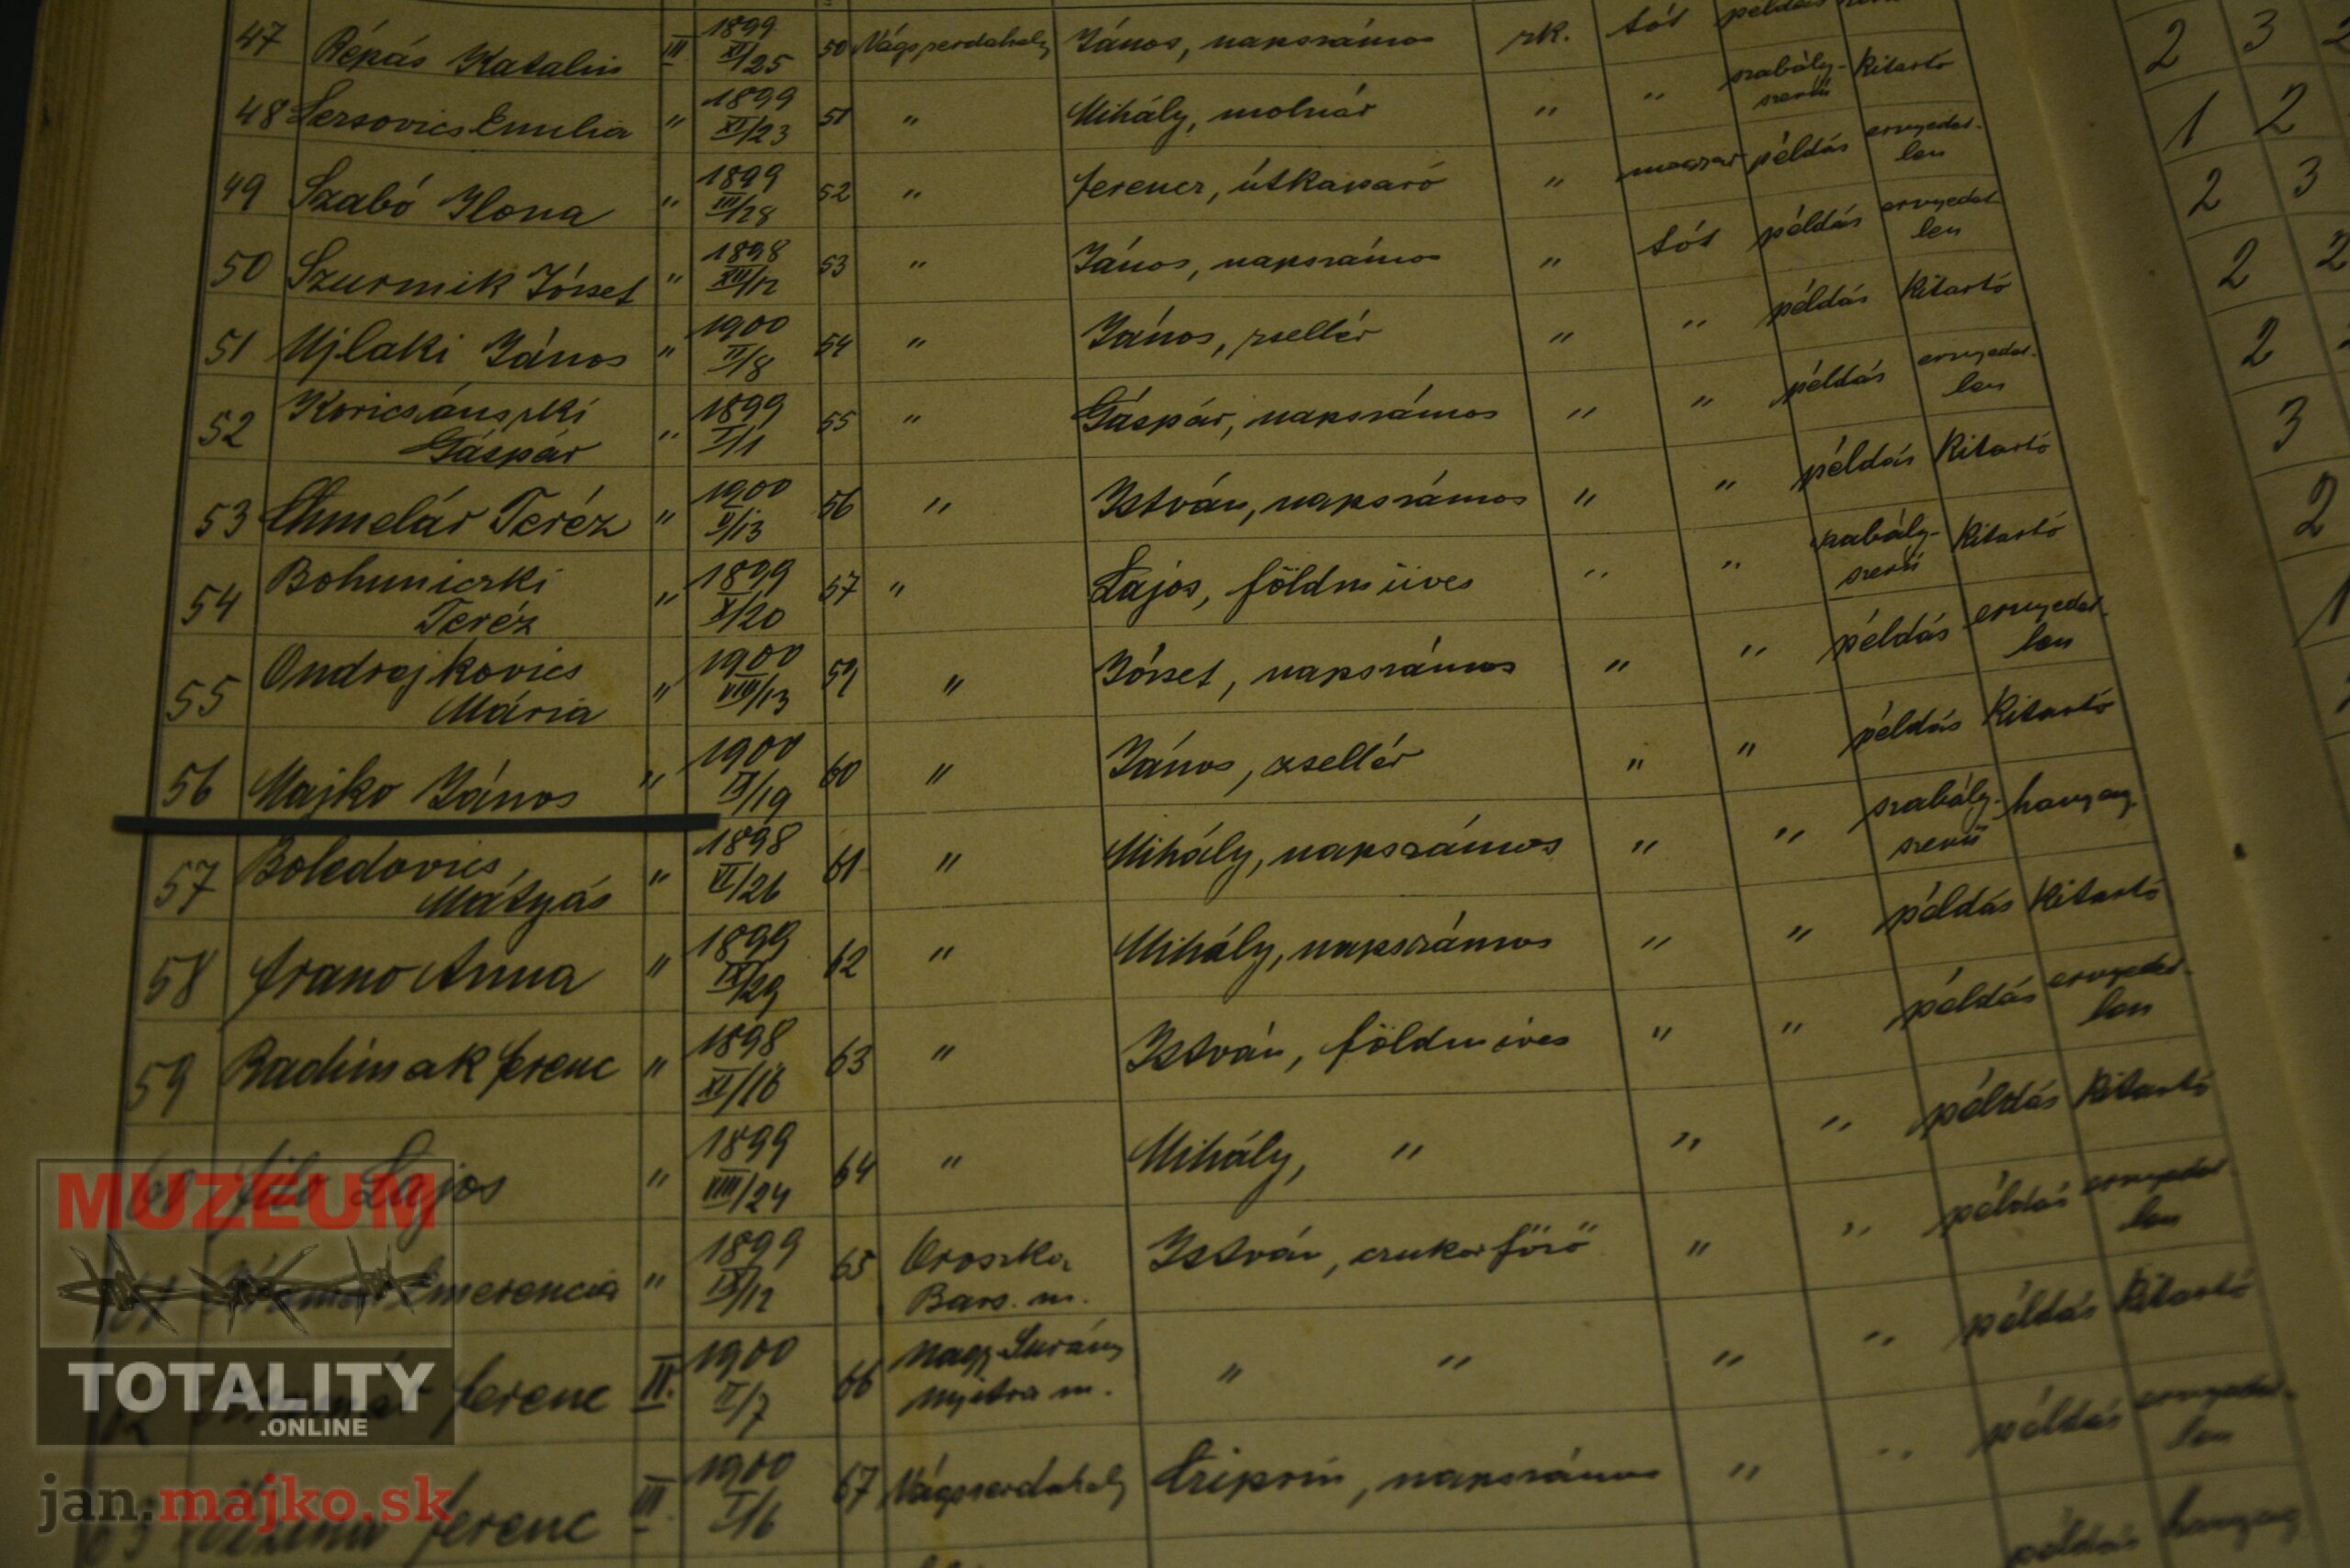 47 Répás Katalin III 1899 XI/25 50 Vágszerdahely János, napszámos rk. tót példás
48 Lersovics Emilia " 1899 XI/23 51 " Mihály, molnár " " szabály-szerű kitartó
49 Szabó Ilona " 1899 III/28 52 " Ferencz, útkaparó " magyar példás ernyedet-len
50 Szurmik József " 1898 XII/12 53 " János, napszámos " tót példás ernyedet-len
51 Ujlaki János " 1900 II/8 54 " János, zsellér " " példás kitartó
52 Koricsánszki Gáspár " 1899 I/1 55 " Gáspár, napszámos " " példás ernyedet-len
53 Chmelár Teréz " 1900 II/13 56 " István, napszámos " " példás kitartó
54 Bohuniczki Teréz " 1899 X/20 57 " Lajos, földmüves " " szabály-szerű kitartó
55 Ondrejkovics Mária " 1900 VIII/13 59 " József, napszámos " " példás ernyedet-len
56 Majko János " 1900 IV/19 60 " János, zsellér " " példás kitartó
57 Boledovics Mátyás " 1898 VI/26 61 " Mihály, napszámos " " szabály-szerű hanyag
58 Frano Anna " 1899 IX/29 62 " Mihály, napszámos " " példás kitartó
59 Radimak Ferenc " 1898 XI/16 63 " István, földmives " " példás ernyedet-len
60 Lajos " 1899 VIII/24 64 " Mihály, " " " példás kitartó
61 Emerencia " 1899 IX/12 65 Oroszka Bars. m. István, czukorfőző " " példás ernyedet-len
Ferenc II. 1900 II/7 66 Nagy-Surány Nyitra m. " " " " példás kitartó
63 Ferenc III. 1900 I/16 67 Vágszerdahely Cziprin, napszámos " " példás ernyedet-len
példás hanyag
2 3 2
1 2
2 3
2 2
2
3
2
1
MUZEUM
TOTALITY
.ONLINE
jan.majko.sk